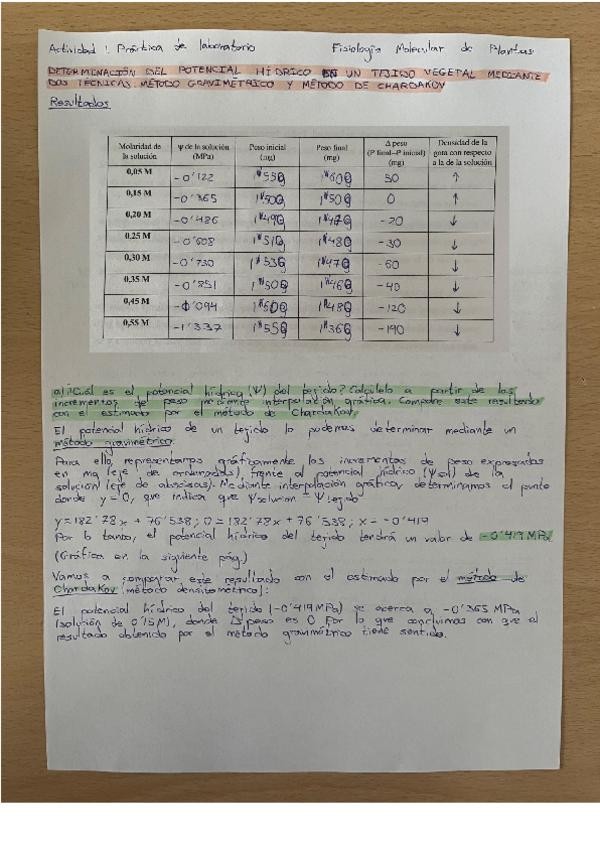 Actividad 1. Práctica de laboratorio Fisiología Molecular de Plantas
DETERMINACIÓN DEL POTENCIAL HÍDRICO EN UN TEJIDO VEGETAL MEDIANTE
DOS TÉCNICAS: MÉTODO GRAVIMÉTRICO Y MÉTODO DE CHARDAKOV
Resultados
Molaridad de la solución Ψ de la solución (MPa) Peso inicial (mg) Peso final (mg) Δ peso (P final–P inicial) (mg) Densidad de la gota con respecto a la de la solución
0,05 M -0'122 50 ↑
0,15 M -0'365 0 ↑
0,20 M -0'486 -20 ↓
0,25 M -0'608 -30 ↓
0,30 M -0'730 -60 ↓
0,35 M -0'851 -40 ↓
0,45 M -120 ↓
0,55 M -1'337 -190 ↓
a) ¿Cuál es el potencial hídrico (Ψ) del tejido? Calcúlelo a partir de los
incrementos de peso mediante interpolación gráfica. Compare este resultado
con el estimado por el método de Chardakov.
El potencial hídrico de un tejido lo podemos determinar mediante un
método gravimétrico.
Para ello, representamos gráficamente los incrementos de peso expresados
en mg (eje de ordenadas) frente al potencial hídrico (Ψ sol) de la
solución (eje de abscisas). Mediante interpolación gráfica, determinamos el punto
donde y = 0, que indica que Ψ solución = Ψ tejido
y = 182'78x + 76'538; 0 = 182'78x + 76'538; x = -0'419
Por lo tanto, el potencial hídrico del tejido tendrá un valor de -0'419 MPa
(Gráfica en la siguiente pág.)
Vamos a comparar este resultado con el estimado por el método de
Chardakov (método densitométrico):
El potencial hídrico del tejido (-0'419 MPa) se acerca a -0'365 MPa
(solución de 0'15 M), donde Δ peso es 0. Por lo que concluimos con que el
resultado obtenido por el método gravimétrico tiene sentido.